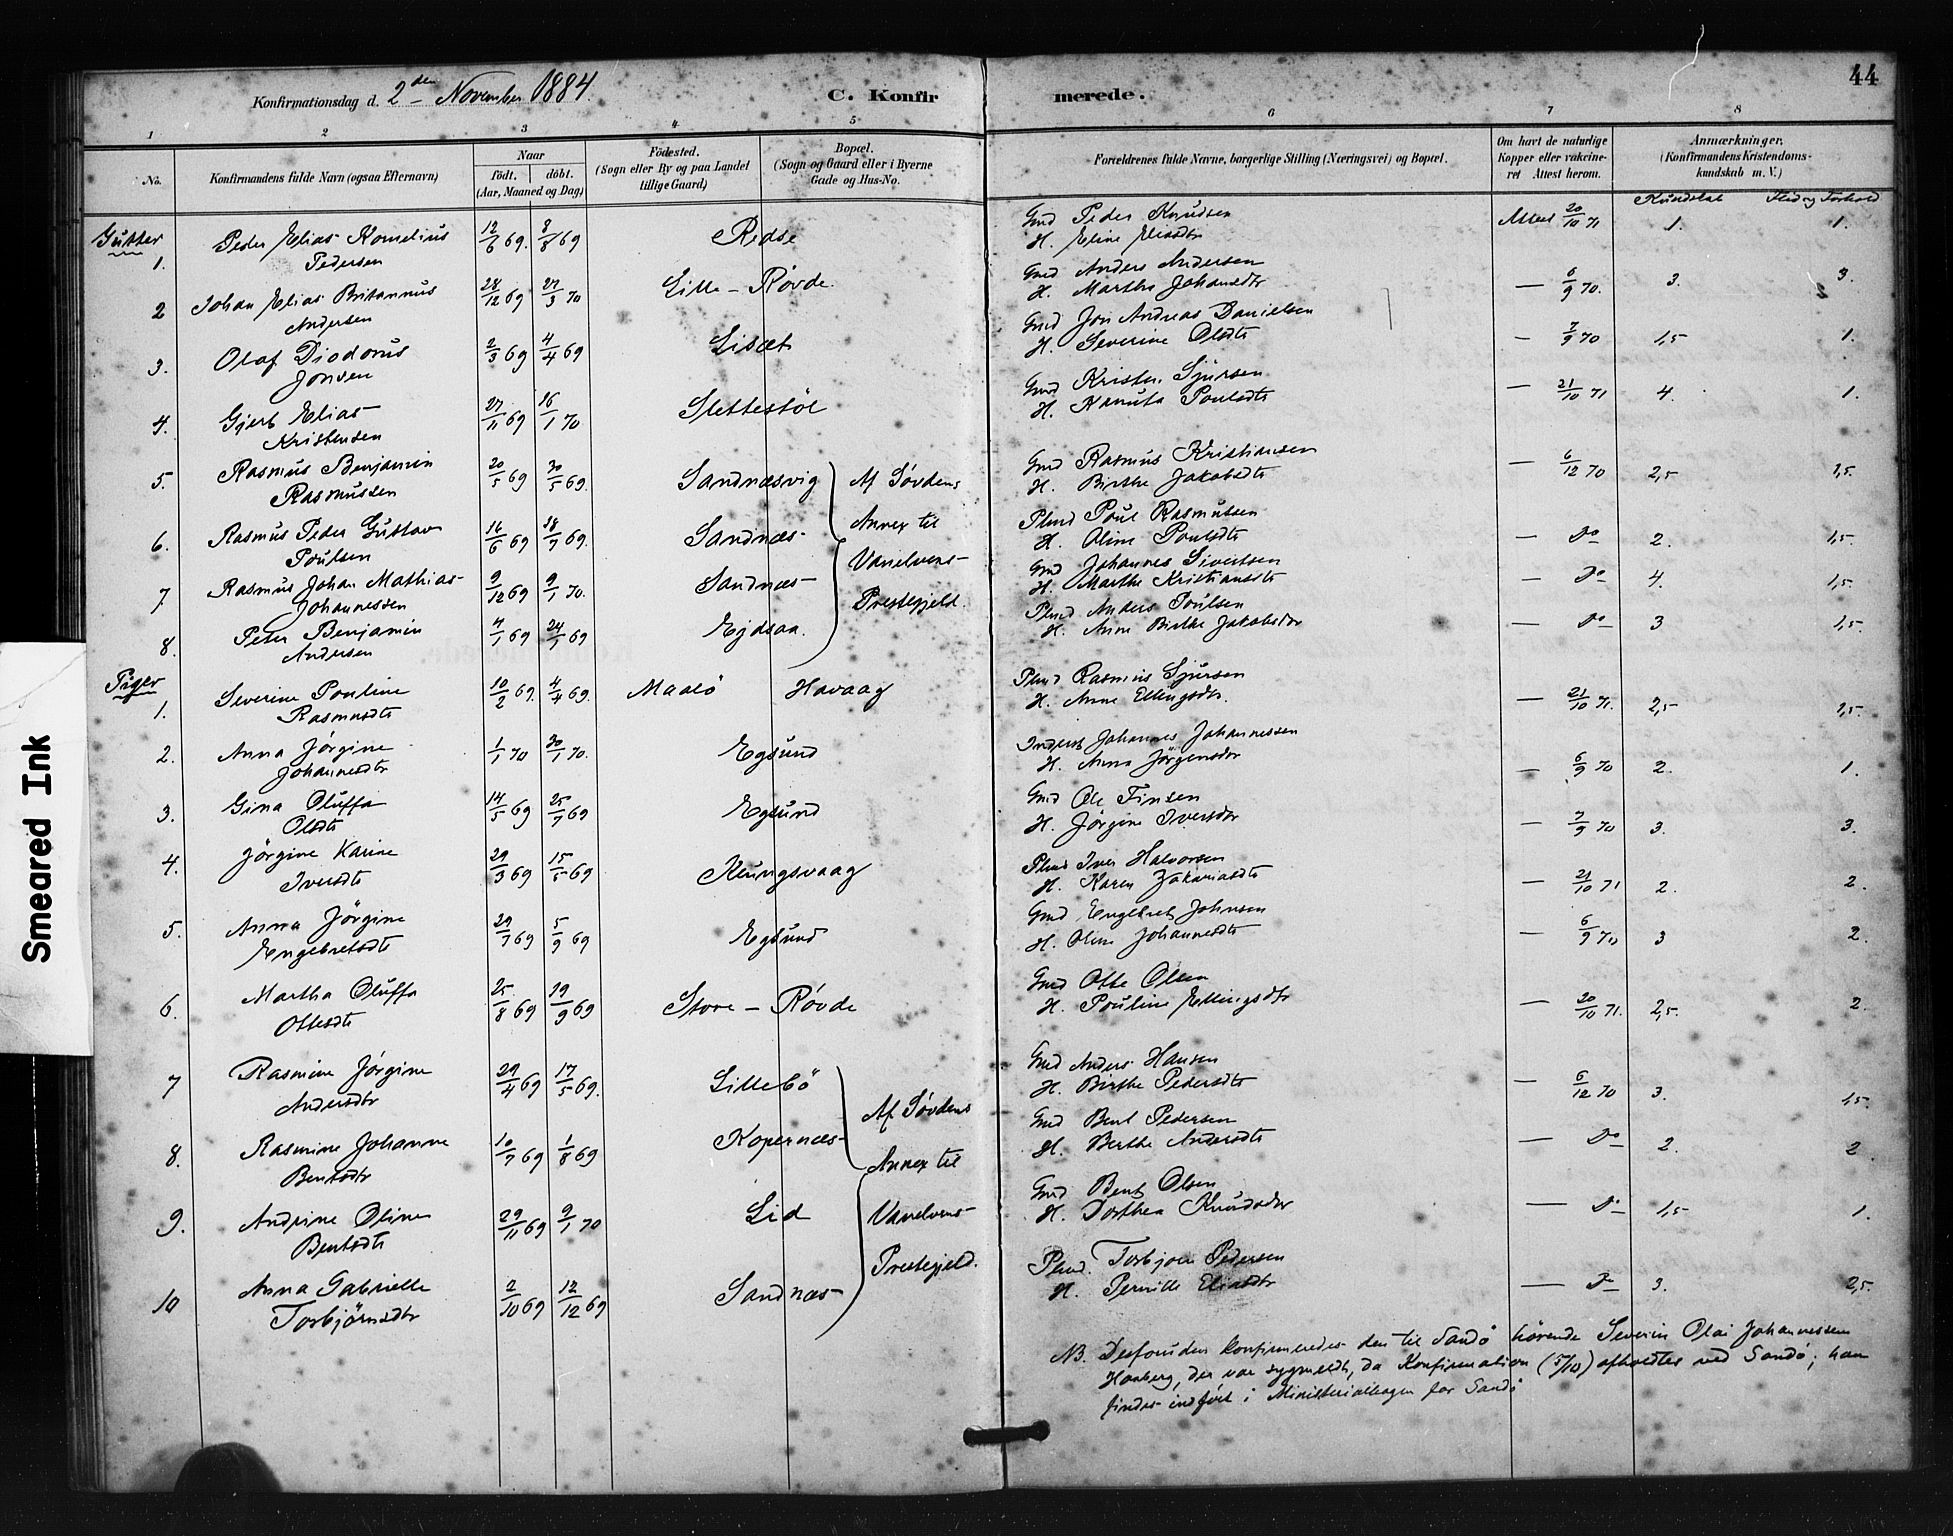 44
Konfirmationsdag d. 2den November 1884.
C. Konfirmerede.
1 2 3 4 5 6 7 8
No.
Konfirmandens fulde Navn (ogsaa Efternavn)
Naar
födt. döbt.
(Aar, Maaned og Dag)
Födested.
(Sogn eller By og paa Landet
tillige Gaard)
Bopæl.
(Sogn og Gaard eller i Byerne
Gade og Hus-No.
Forældrenes fulde Navne, borgerlige Stilling (Næringsvei) og Bopæl.
Om havt de naturlige
Kopper eller vakcine-
ret Attest herom.
Anmærkninger,
(Konfirmandens Kristendoms-
kundskab m. V.)
Kundskab Flid og Forhold
Gutter
1. Peder Elias Kornelius 12/6 69. 8/8 69 Rødse Gmd Peder Knudsen Attest 20/10 71 1. 1.
Pedersen H. Eline Eliasdtr
2 Johan Elias Britannus 28/12 69 27/3 70 Lille - Røvde. Gmd Anders Andersen — 6/9 70. 3. 3.
Andersen H. Marthe Johansdtr
3. Olaf Diodorus 2/3 69 4/4 69 Lisæt Gmd Jon Andreas Danielsen — 7/9 70 1,5 1.
Jonsen H. Severine Olsdtr
4. Gjert Elias 27/11 69 16/1 70 Slettestöl Gmd Kristen Sjursen — 21/10 71 4. 1.
Kristensen H. Kanuta Poulsdtr
5. Rasmus Benjamin 20/5 69 30/5 69. Sandnæsvig Af Søvdens Gmd Rasmus Kristiansen — 6/12 70 2,5 1,5.
Rasmussen H. Birthe Jakobsdtr
6. Rasmus Peder Gustav 16/6 69 18/7 69. Sandnæs Annex til Plmd Poul Rasmussen — Do 2. 1,5.
Poulsen H. Oline Poulsdtr
7. Rasmus Johan Mathias 9/12 69 9/1 70. Sandnæs Vanelvens Gmd Johannes Sivertsen — Do 4. 1,5.
Johannessen H. Marthe Kristiansdtr
Prestegjeld.
8. Peter Benjamin 4/1 69 24/1 69 Ejdsaa. Plmd Anders Poulsen — Do 3 1,5.
Andersen H. Anne Birthe Jakobsdtr
Piger
1. Severine Pouline 10/2 69. 4/4 69. Maalö Havaag Plmd Rasmus Sjursen — 21/10 71. 2,5 1,5.
Rasmusdtr H. Anne Ellingsdtr.
2. Anna Jörgine 1/1 70 30/1 70. Egsund Inderst Johannes Johannessen — 6/9 70 2. 1.
Johannesdtr H. Anna Jörgensdtr
3. Gina Oluffa 14/5 69 25/7 69 Egsund Gmd Ole Finsen — 7/9 70 3. 3.
Olsdtr H. Jörgine Iversdtr
4. Jörgine Karine 29/3 69 15/5 69 Kungsvaag Plmd Iver Halvorsen — 21/10 71 2. 2.
Iversdtr H. Karen Zakariasdtr
5. Anna Jörgine 29/7 69 5/9 69 Egsund Gmd Engebret Johnsen — 6/9 70 3 2.
Engebretsdtr H. Oline Johannesdtr
6. Martha Oluffa 25/8 69 19/9 69 Store - Røvde Gmd Otte Olsen — 20/10 71. 2,5. 2.
Ottesdtr H. Pouline Ellingsdtr
7 Rasmine Jörgine 29/4 69 17/5 69. Lillebö Af Søvdens Gmd Anders Hansen — 6/12 70 3. 1,5.
Andersdtr H. Birthe Pedersdtr
8. Rasmine Johanne 10/7 69 1/8 69 Kopernæs Annex til Gmd Bent Pedersen — Do 2. 2
Bentsdtr H. Berthe Andersdtr
9. Andrine Oline 29/11 69 9/1 70 Lid Vanelvens Gmd Bent Olsen — Do 1,5 1.
Bentsdtr H. Dorthea Knudsdtr
Prestegjeld.
10 Anna Gabrielle 2/10 69 12/12 69 Sandnæs Plmd. Torbjörn Pedersen — Do 3. 2,5.
Torbjörnsdtr H. Pernille Eliasdtr
NB. Desforuden konfirmeredes den til Sandö hörende Severin Olai Johannessen
Haaberg, der var sygmeldt, da Konfirmation (5/10) afholdtes ved Sandö; han
findes indført i Ministerialbogen for Sandö
Smeared Ink